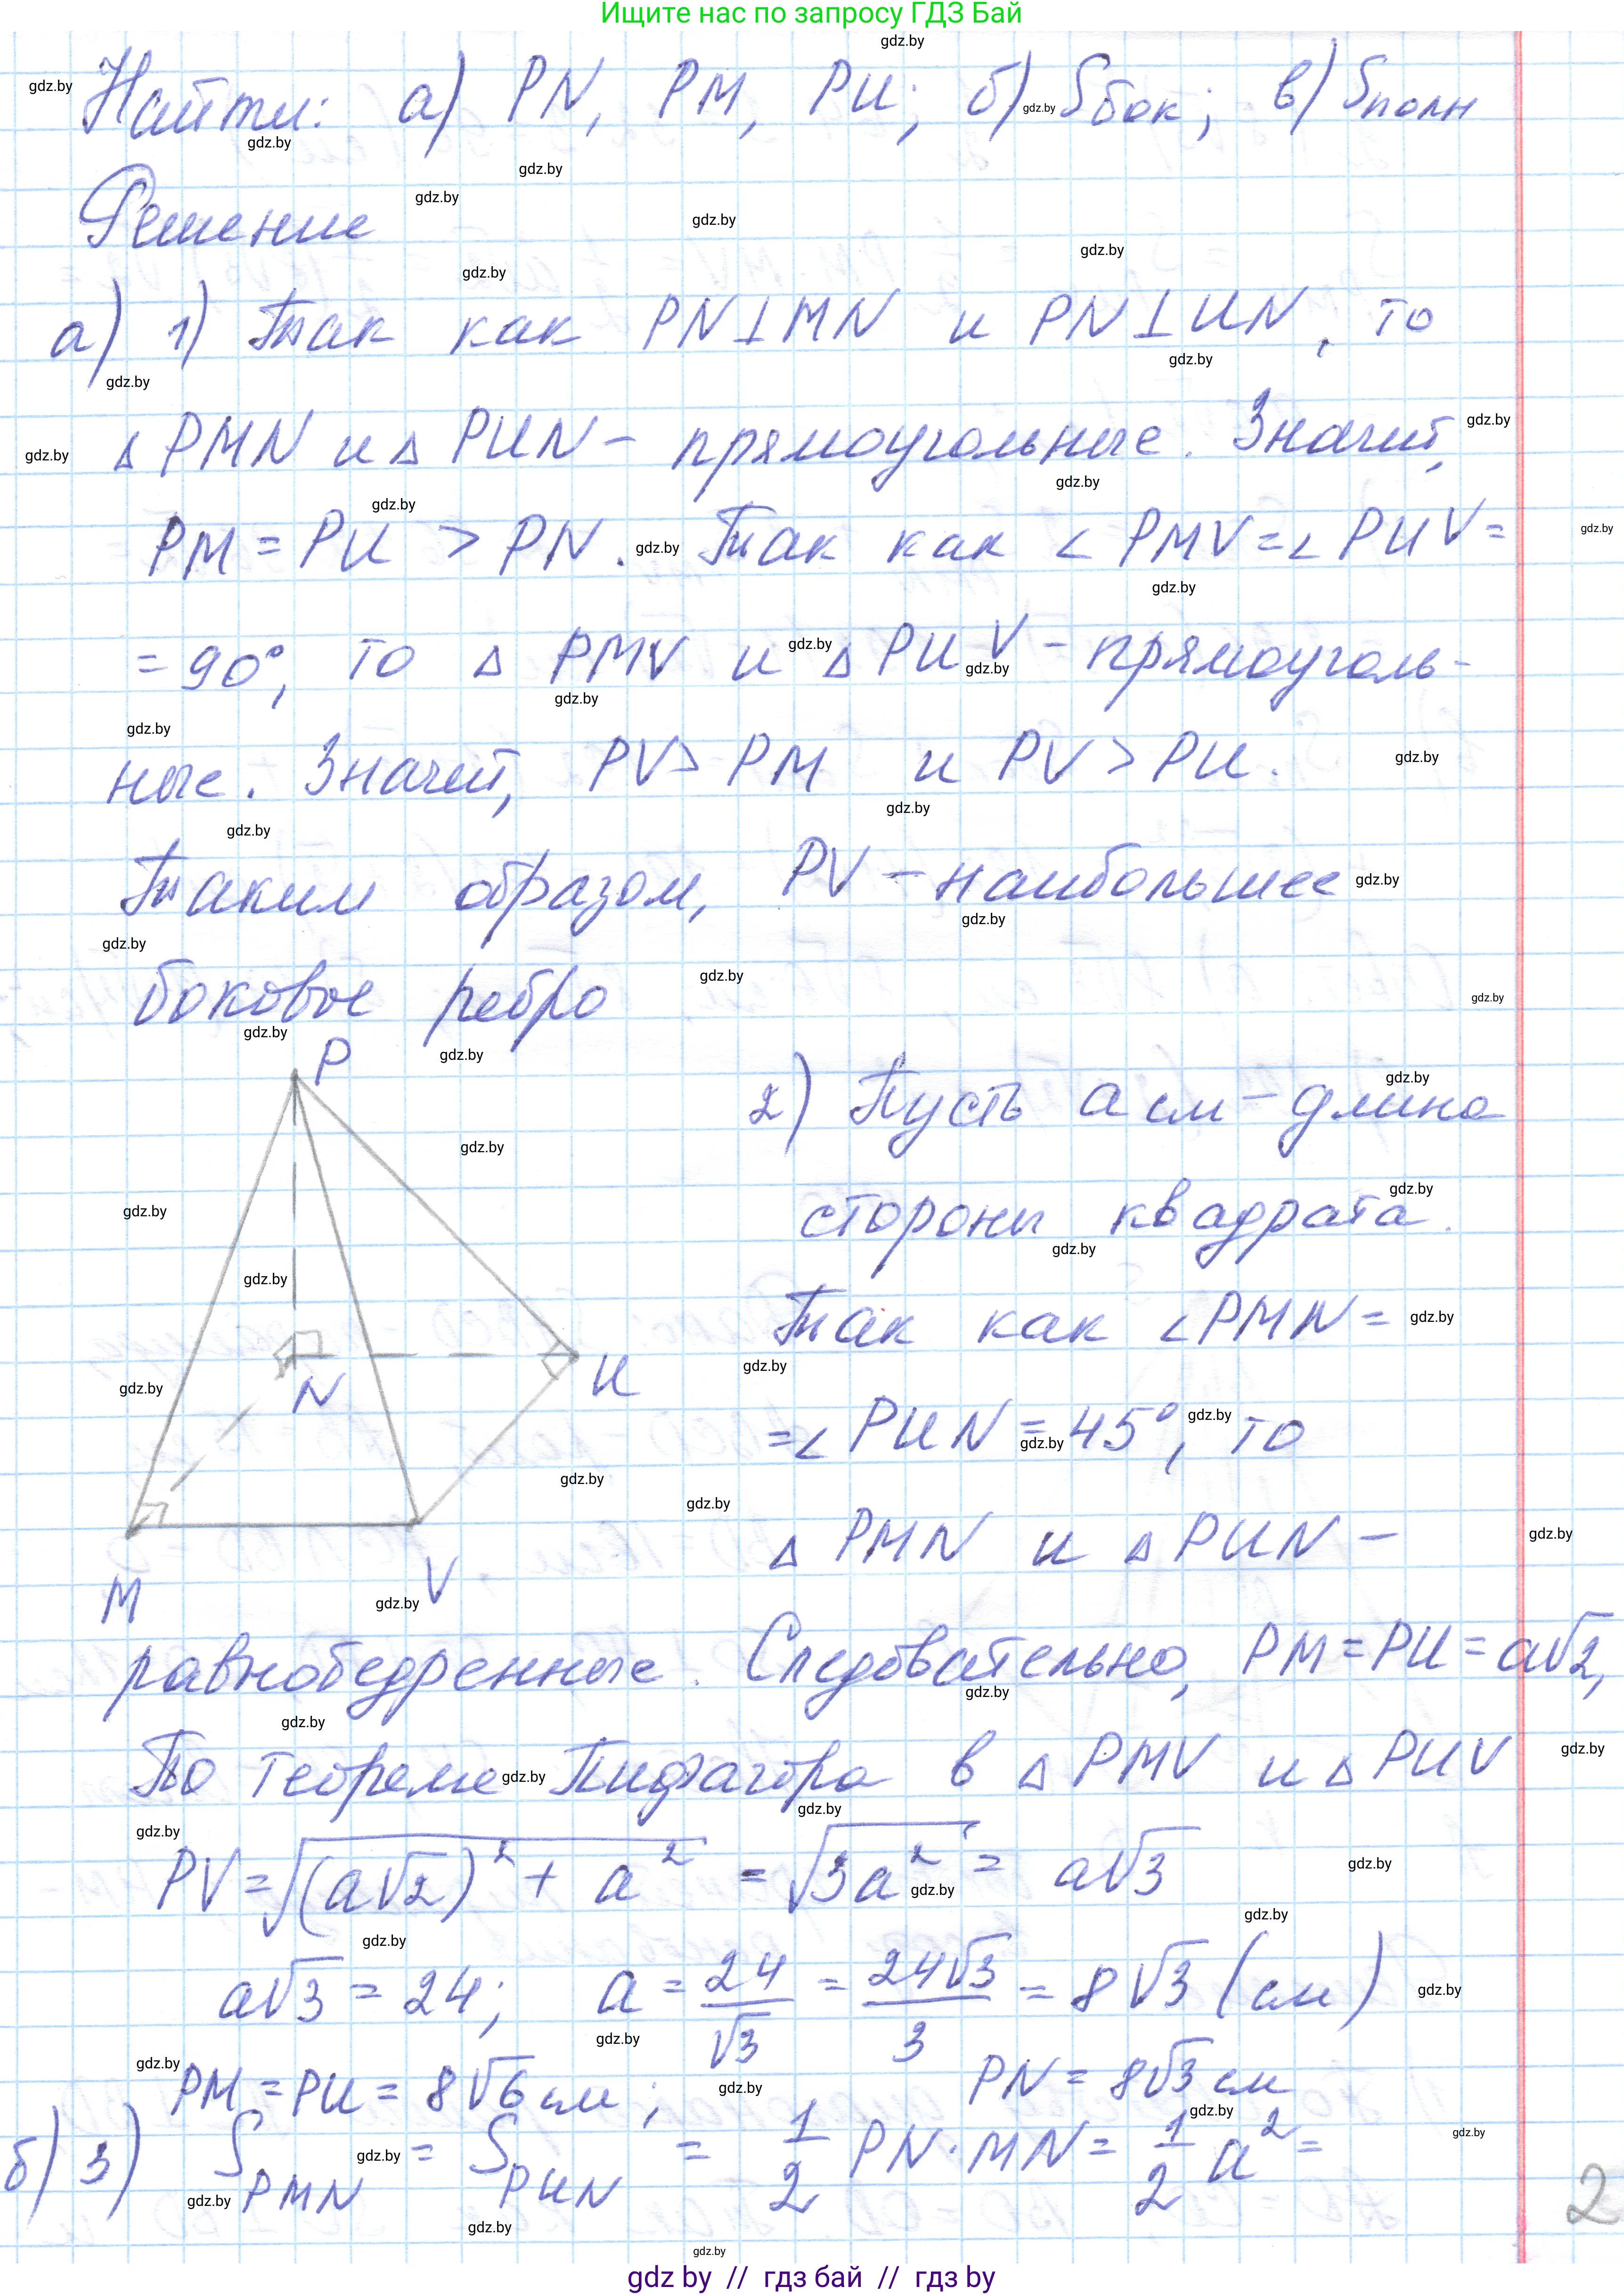 Ищите нас по запросу ГДЗ Бай
Найти: а) PN, PM, PU; б) Sбок; в) Sполн
Решение
а) 1) Так как PN⊥MN и PN⊥UN, то
△ PMN и △ PUN – прямоугольные. Значит,
PM = PU > PN. Так как ∠PMV = ∠PUV =
= 90°, то △ PMV и △ PUV – прямоуголь-
ные. Значит, PV > PM и PV > PU.
Таким образом, PV – наибольшее
боковое ребро
P
2) Пусть a см – длина
стороны квадрата.
Так как ∠PMN =
N
U
= ∠PUN = 45°, то
△ PMN и △ PUN –
M
V
равнобедренные. Следовательно, PM = PU = a√2,
По теореме Пифагора в △ PMV и △ PUV
PV = √((a√2)² + a²) = √(3a²) = a√3
a√3 = 24; a = 24/√3 = 24√3/3 = 8√3 (см)
PM = PU = 8√6 см; PN = 8√3 см
б) 3) S PMN = S PUN = 1/2 PN · MN = 1/2 a² =
2
gdz by // гдз бай // гдз by